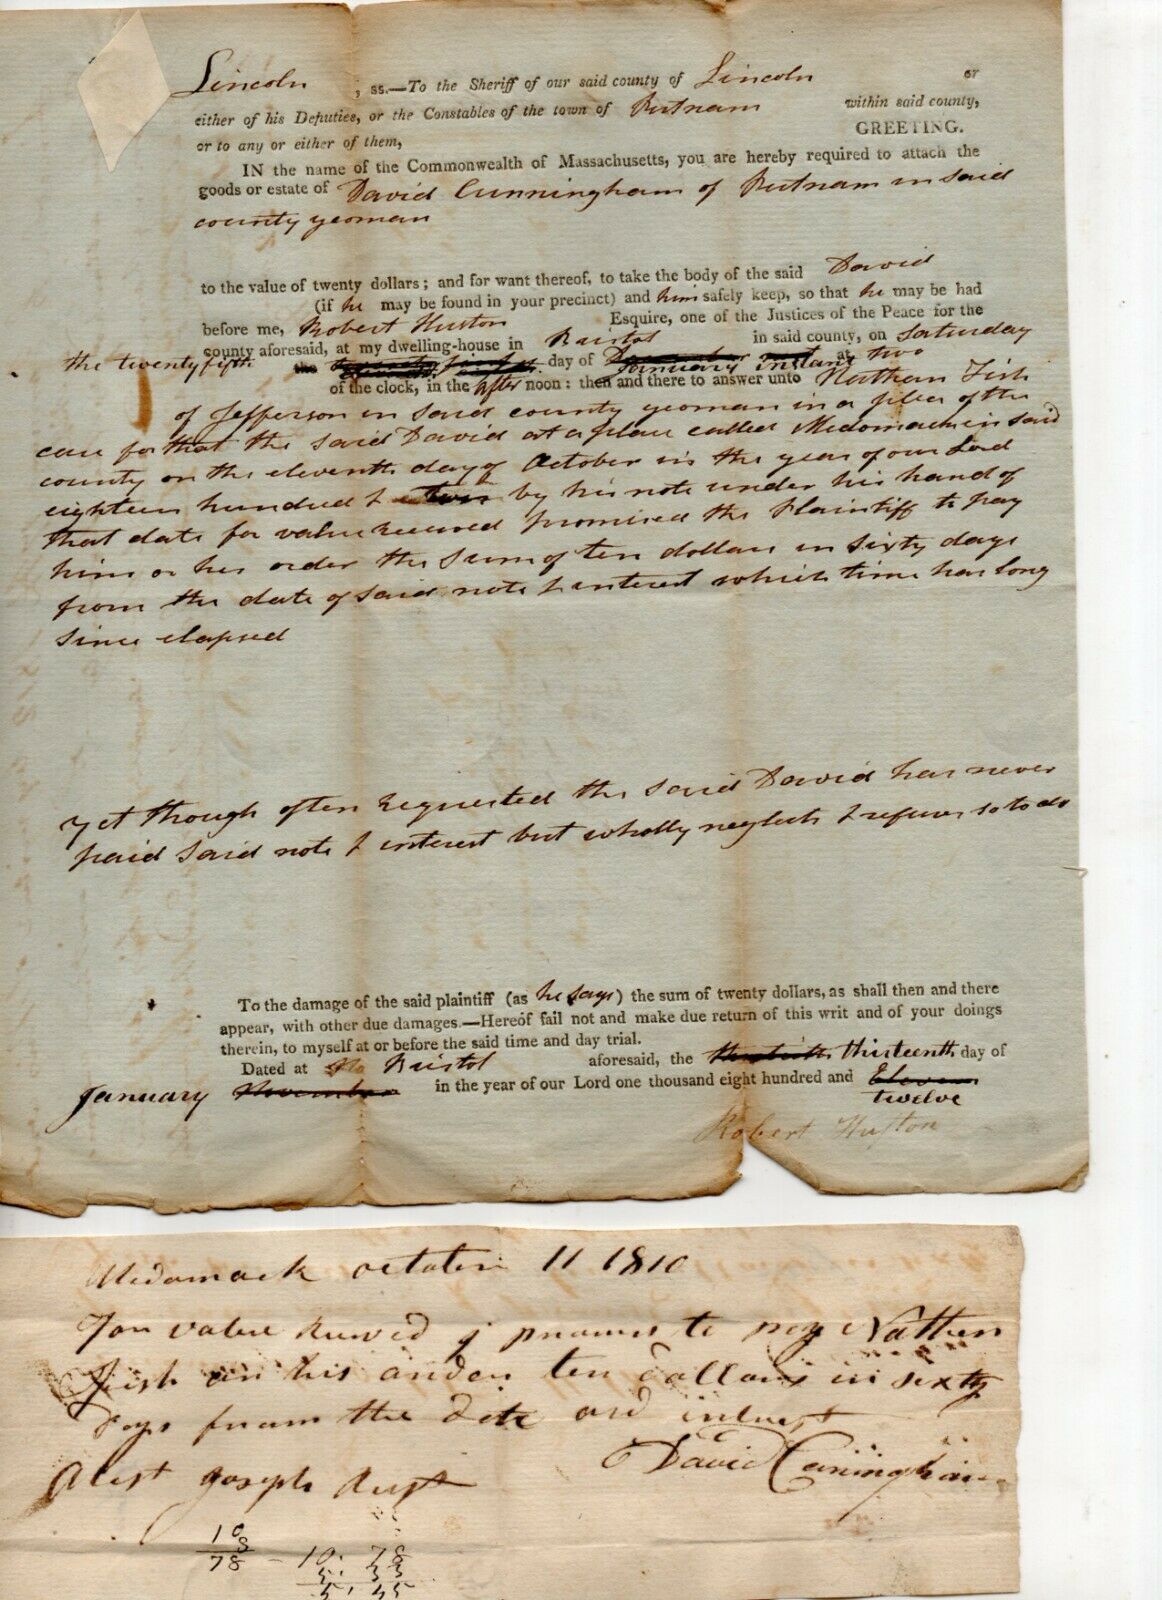 Lincoln , ss.—To the Sheriff of our said county of Lincoln or
either of his Deputies, or the Constables of the town of Putnam within said county,
or to any or either of them, GREETING.
IN the name of the Commonwealth of Massachusetts, you are hereby required to attach the
goods or estate of David Cunningham of Putnam in said
county yeoman
to the value of twenty dollars; and for want thereof, to take the body of the said David
(if he may be found in your precinct) and him safely keep, so that he may be had
before me, Robert Huston Esquire, one of the Justices of the Peace for the
county aforesaid, at my dwelling-house in Bristol in said county, on Saturday
the twenty fifth day of January instant at two
of the clock, in the after noon: then and there to answer unto Nathan Fish
of Jefferson in said county yeoman in a plea of the
case for that the said David at a place called Medomack in said
county on the eleventh day of October in the year of our Lord
eighteen hundred & ten by his note under his hand of
that date for value received promised the Plaintiff to pay
him or his order the sum of ten dollars in sixty days
from the date of said note & interest which time has long
since elapsed
yet though often requested the said David has never
paid said note & interest but wholly neglects & refuses so to do
To the damage of the said plaintiff (as he says) the sum of twenty dollars, as shall then and there
appear, with other due damages.—Hereof fail not and make due return of this writ and of your doings
therein, to myself at or before the said time and day trial.
Dated at Bristol aforesaid, the thirteenth day of
January November in the year of our Lord one thousand eight hundred and Eleven
twelve
Robert Huston
Medomack octoten 11 1810
For value receved j promis to pay Nathen
Fish or his order ten dollars in sixty
days from the date and intrest
David Cuningham
Atest Joseph Rust
10
8
78 – 10: 78
5: 33
5: 45